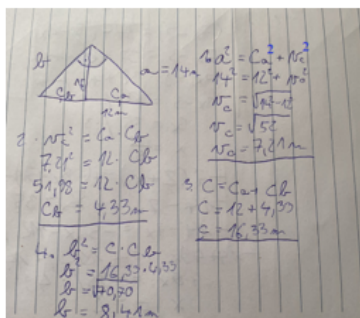 b
a = 14m
v_c
c_b
c_a
12m
1. a² = c_a² + v_c²
14² = 12² + v_c²
v_c = √14² - 12²
v_c = √52
v_c = 7,21m
2. v_c² = c_a · c_b
7,21² = 12 · c_b
51,98 = 12 · c_b
c_b = 4,33m
3. c = c_a + c_b
c = 12 + 4,33
c = 16,33m
4. b² = c · c_b
b² = 16,33 · 4,33
b = √70,70
b = 8,41m